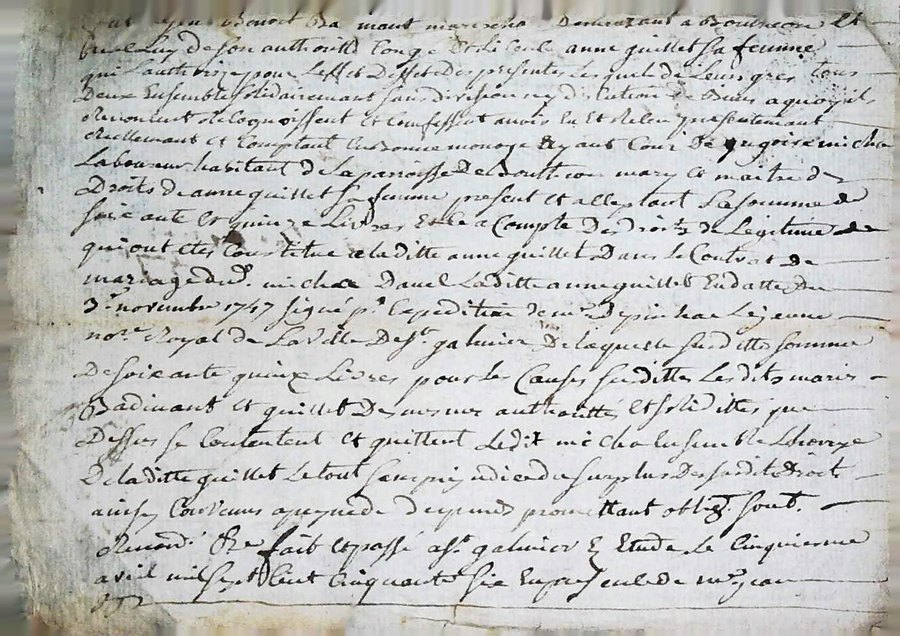 Benoit Ba mant marechal Demeurant a Bouthcon Et
Luy de son authoritté Congé Et Licence anne guillet sa femme
qui Lauthorise pour Leffet Des presentes Lesquels de Leurs gres tous
Deux Ensemble solidairemant sans division ny discution de Biens a quoy ils
Renoncent Recognoissent Et confessent avoir Eu Et Receu presentement
Reellemant Et Comptant En Bonne monoye ayant Cour De gregoire micha
Laboureur habitant de La parroisse De Bouthcon mary Et maitre des
Droits de anne guillet sa femme present et acceptant La somme de
soixante Et quinze Livres Et ce a Compte Des Droits de Legitime
qui ont Etés Constitué a laditte anne guillet Dans le Contrat de
mariage dud. micha avec Laditte anne guillet En datte Du
3e. novembre 1747 signé pr. Expedition de me. Depineau Lejeune
nore. Royal de La Ville De st. galmier De laquelle susditte somme
De soixante quinze Livres pour les Causes susdittes Les dits mariés
Badinant Et guillet De mesmes authorittés Et solidittés que
Dessus se Contentent Et quittent Ledit micha Ensemble
De laditte guillet Le tout sans prejudice du surplus Des susdits Droit.
ainsy Convenus a peyne de depends promettant oblig. soub.
Renonc. fait Et passé a st. galmier Etude Le Cinquieme
avril mil sept Cent Cinquante six En presence de me. jean